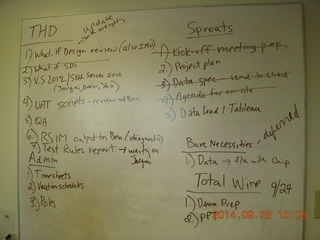 THD
update with weights
1) What if Design review (also IMU)
2) What if SDS
3) VS 2012/SQL server 2012
4) UAT scripts - review w/ Ben
5) QA
6) RSIM output to Ben (diagnostic)
7) Test Rules report → waiting on
Admin
1) Timesheets
2) Vacation schedules
3) Roles
Sprouts
1) Kick-off meeting prep
2) Project plan
3) Data spec - send to client
4) Agenda for on-site
5) Data load / Tableau
Bare Necessities - deferred
1) Data → f/u with Chip
Total Wine 9/24
1) Demo Prep
2) PPT
2014.08.26 10:05